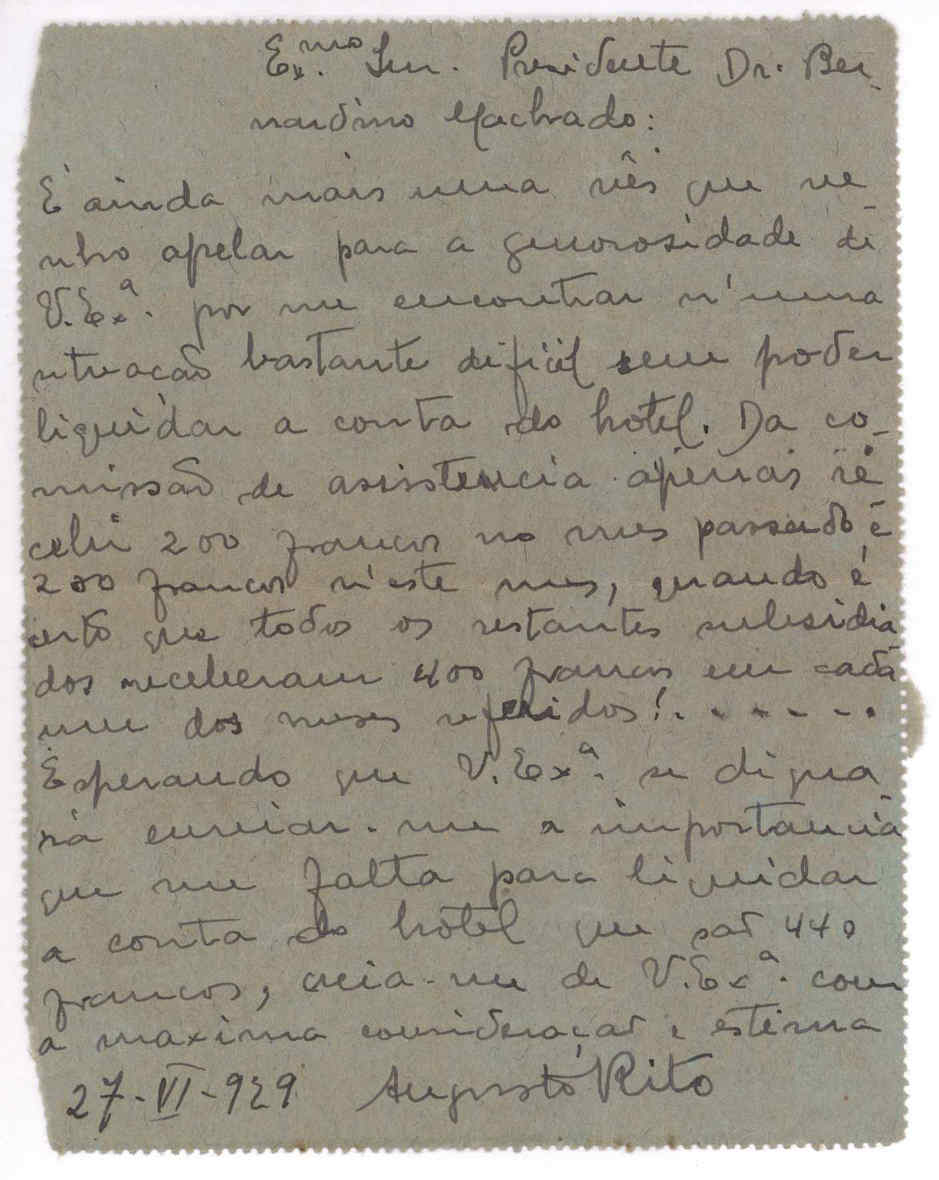 Ex.mo Snr. Presidente Dr. Ber-
nardino Machado:
É ainda mais uma vês que ve-
nho apelar para a generosidade de
V. Exª. por me encontrar n'uma
situação bastante dificil sem poder
liquidar a conta do hotel. Da co-
missão de assistencia apenas re-
cebi 200 francos no mes passado e
200 francos n'este mes, quando é
certo que todos os restantes subsidia-
dos receberam 400 francos em cada
um dos meses referidos!. . . . . . .
Esperando que V. Exª. se digna-
rá enviar-me a importancia
que me falta para liquidar
a conta do hotel que são 440
francos, creia-me de V. Exª. com
a maxima consideração e estima
27-VI-929 Augusto Rito